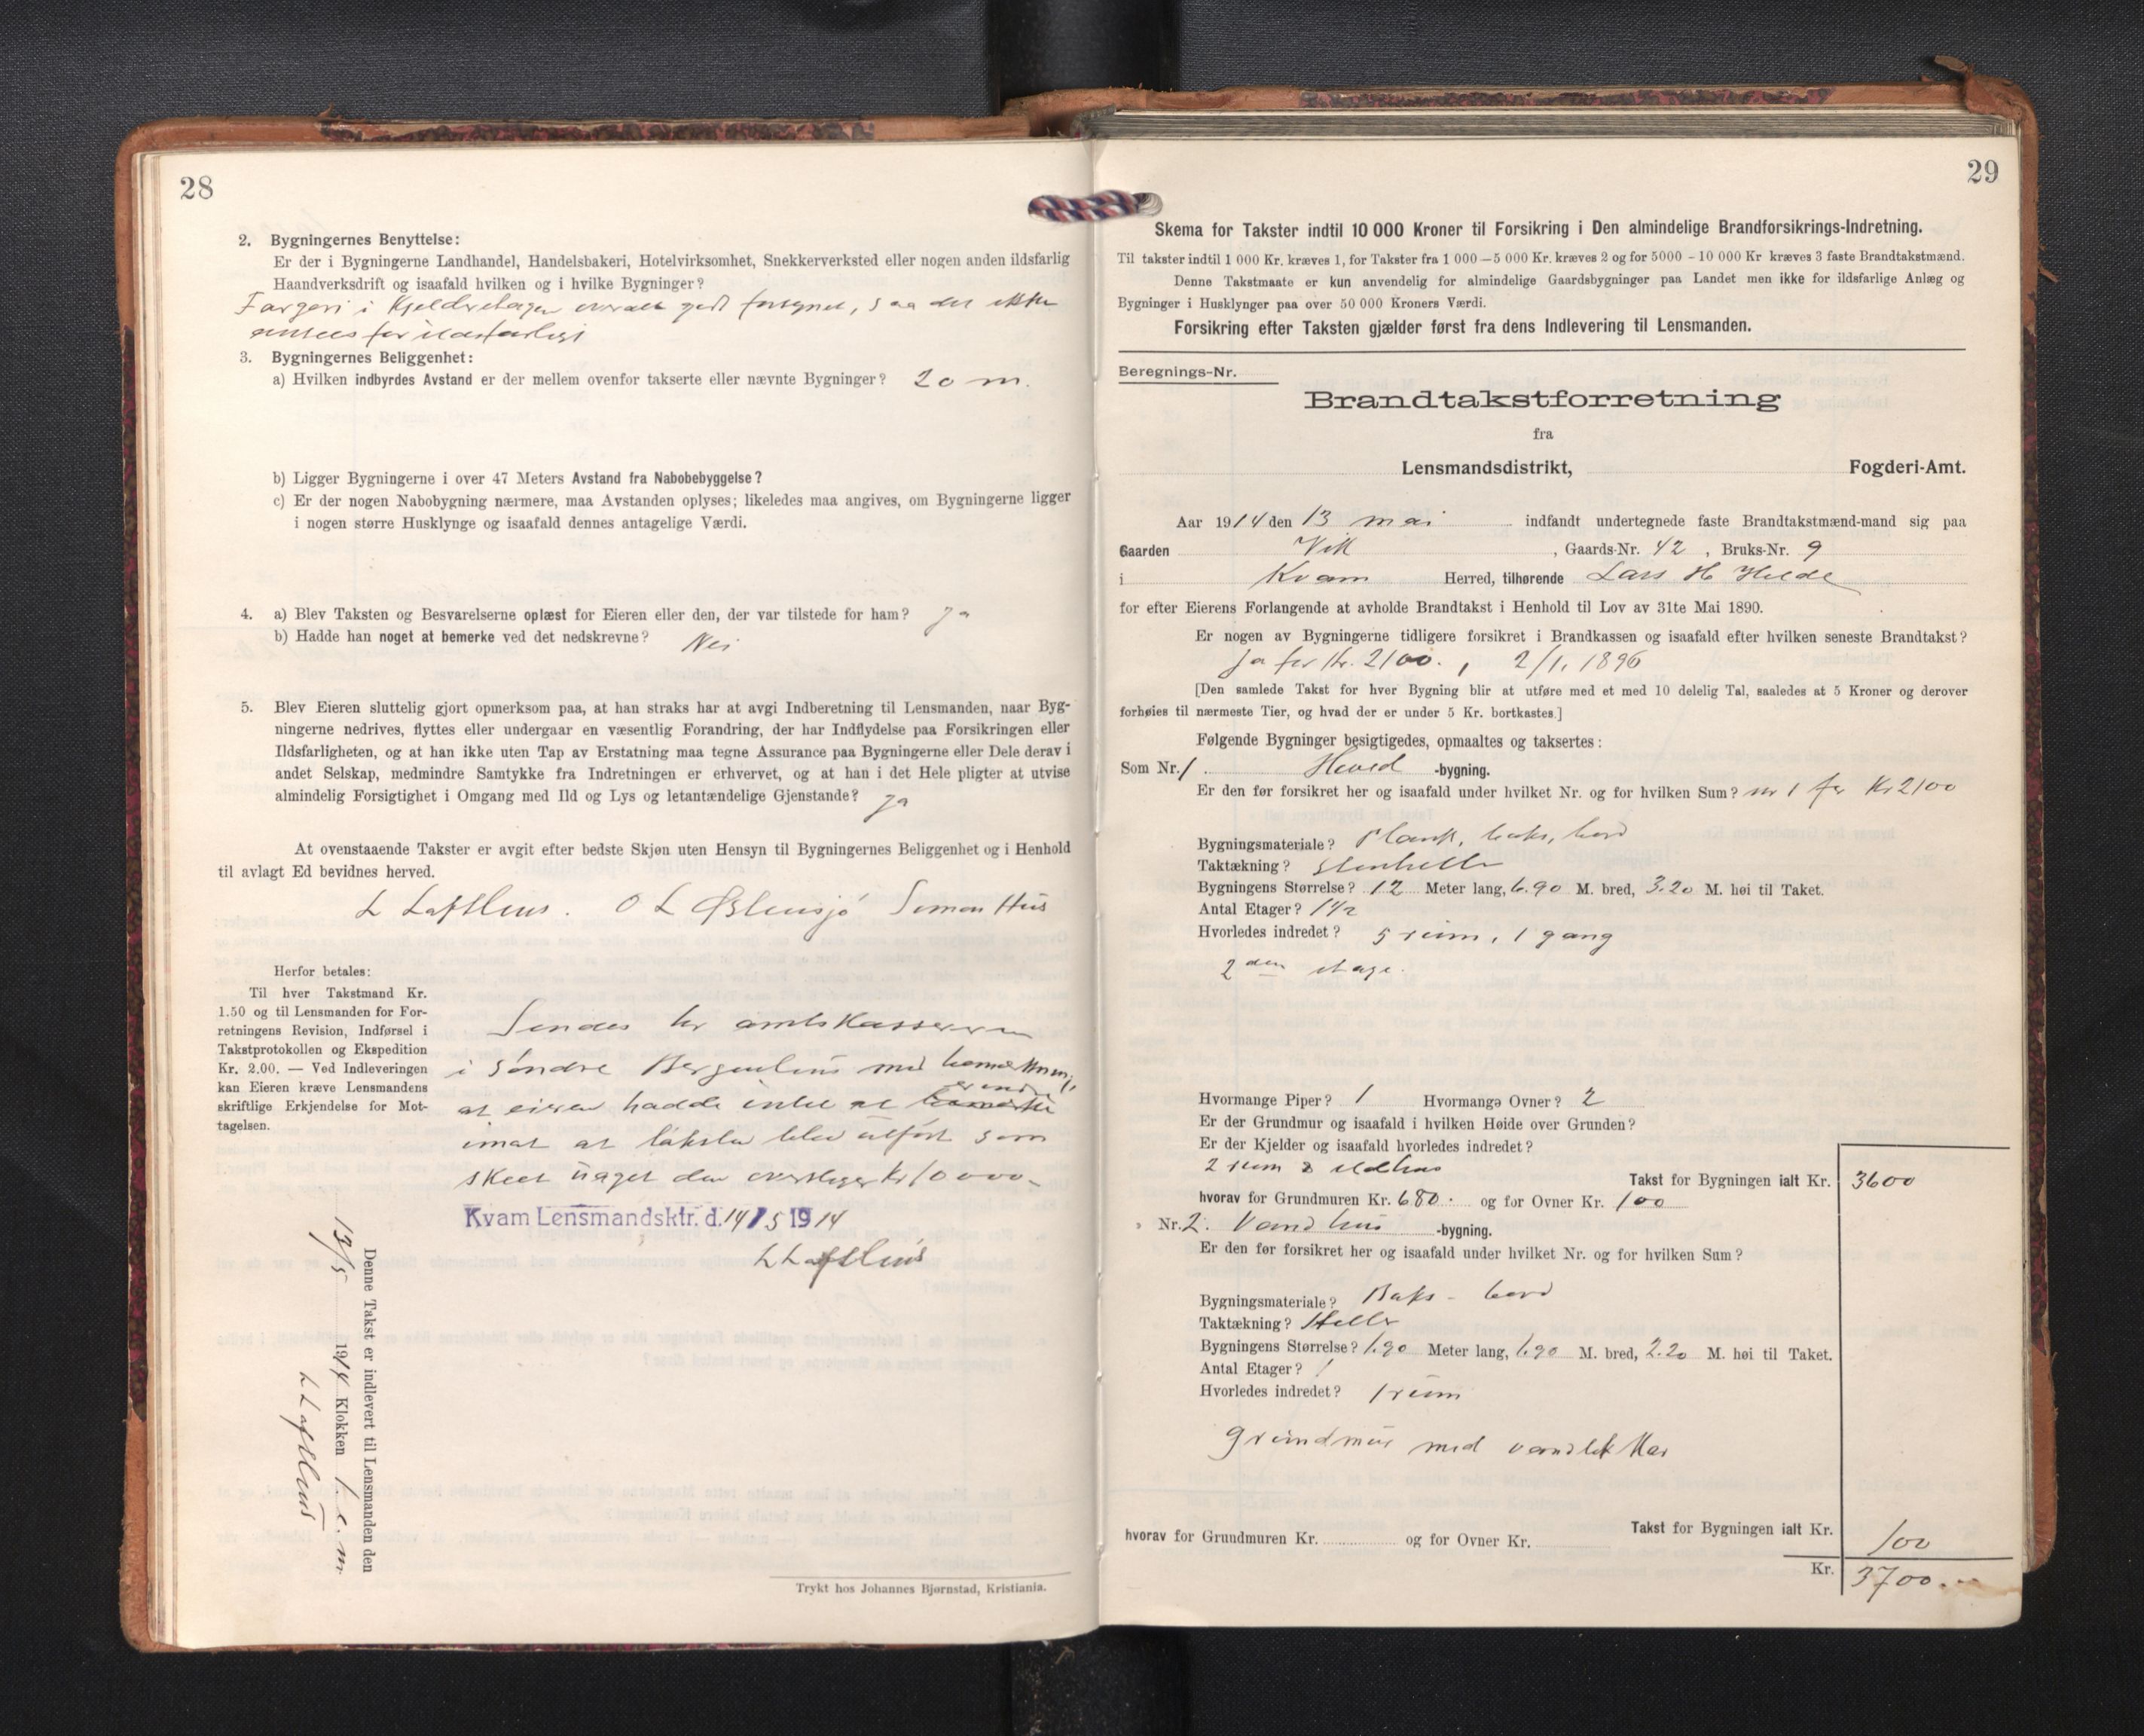 28
2. Bygningernes Benyttelse:
Er der i Bygningerne Landhandel, Handelsbakeri, Hotelvirksomhet, Snekkerverksted eller nogen anden ildsfarlig
Haandverksdrift og isaafald hvilken og i hvilke Bygninger?
Fargeri i Kjelderetagen overalt godt forsynet, saa det ikke
ansees for ildsfarligt
3. Bygningernes Beliggenhet:
a) Hvilken indbyrdes Avstand er der mellem ovenfor takserte eller nævnte Bygninger? 20 m.
b) Ligger Bygningerne i over 47 Meters Avstand fra Nabobebyggelse?
c) Er der nogen Nabobygning nærmere, maa Avstanden oplyses; likeledes maa angives, om Bygningerne ligger
i nogen større Husklynge og isaafald dennes antagelige Værdi.
4. a) Blev Taksten og Besvarelserne oplæst for Eieren eller den, der var tilstede for ham? Ja
b) Hadde han noget at bemerke ved det nedskrevne? Nei
5. Blev Eieren sluttelig gjort opmerksom paa, at han straks har at avgi Indberetning til Lensmanden, naar Byg-
ningerne nedrives, flyttes eller undergaar en væsentlig Forandring, der har Indflydelse paa Forsikringen eller
Ildsfarligheten, og at han ikke uten Tap av Erstatning maa tegne Assurance paa Bygningerne eller Dele derav i
andet Selskap, medmindre Samtykke fra Indretningen er erhvervet, og at han i det Hele pligter at utvise
almindelig Forsigtighet i Omgang med Ild og Lys og letantændelige Gjenstande? Ja
At ovenstaaende Takster er avgit efter bedste Skjøn uten Hensyn til Bygningernes Beliggenhet og i Henhold
til avlagt Ed bevidnes herved.
L Lofthus. O L Østensjø Simon Hus
Herfor betales:
Til hver Takstmand Kr.
1.50 og til Lensmanden for For-
retningens Revision, Indførsel i
Takstprotokollen og Ekspedition
Kr. 2.00. — Ved Indleveringen
kan Eieren kræve Lensmandens
skriftlige Erkjendelse for Mot-
tagelsen.
Sendes hr amtskasserern
i Søndre Bergenhus med
at eieren hadde intet at
imot at taksten blev utført som
skeet uagtet den overstiger Kr 10000-
Kvam Lensmandsktr. d. 14/5 1914
L Lofthus
Denne Takst er indlevert til Lensmanden den
13/5 1914 Klokken 1 e.m
L Lofthus
Trykt hos Johannes Bjørnstad, Kristiania.
29
Skema for Takster indtil 10 000 Kroner til Forsikring i Den almindelige Brandforsikrings-Indretning.
Til takster indtil 1 000 Kr. kræves 1, for Takster fra 1 000—5 000 Kr. kræves 2 og for 5000 – 10 000 Kr kræves 3 faste Brandtakstmænd.
Denne Takstmaate er kun anvendelig for almindelige Gaardsbygninger paa Landet men ikke for ildsfarlige Anlæg og
Bygninger i Husklynger paa over 50 000 Kroners Værdi.
Forsikring efter Taksten gjælder først fra dens Indlevering til Lensmanden.
Beregnings-Nr.
Brandtakstforretning
fra
Lensmandsdistrikt, Fogderi-Amt.
Aar 1914 den 13 mai indfandt undertegnede faste Brandtakstmænd-mand sig paa
Gaarden Vik, Gaards-Nr. 42, Bruks-Nr. 9
i Kvam Herred, tilhørende Lars H Helde
for efter Eierens Forlangende at avholde Brandtakst i Henhold til Lov av 31te Mai 1890.
Er nogen av Bygningerne tidligere forsikret i Brandkassen og isaafald efter hvilken seneste Brandtakst?
Ja for Kr. 2100. , 2/1, 1896
[Den samlede Takst for hver Bygning blir at utføre med et med 10 delelig Tal, saaledes at 5 Kroner og derover
forhøies til nærmeste Tier, og hvad der er under 5 Kr. bortkastes.]
Følgende Bygninger besigtigedes, opmaaltes og taksertes:
Som Nr. 1 Hoved -bygning.
Er den før forsikret her og isaafald under hvilket Nr. og for hvilken Sum? nr 1 for Kr 2100
Bygningsmateriale? Plank, baks, bord
Taktækning? stenheller
Bygningens Størrelse? 12 Meter lang, 6.90 M. bred, 3.20 M. høi til Taket.
Antal Etager? 1 1/2
Hvorledes indredet? 5 rum, 1 gang
2den etage.
Hvormange Piper? 1 Hvormange Ovner? 2
Er der Grundmur og isaafald i hvilken Høide over Grunden?
Er der Kjelder og isaafald hvorledes indredet?
2 rum & ildhus
Takst for Bygningen ialt Kr. 3600
hvorav for Grundmuren Kr. 680. og for Ovner Kr. 100
Nr. 2. Vandhus -bygning.
Er den før forsikret her og isaafald under hvilket Nr. og for hvilken Sum?
Bygningsmateriale? Baks - bord
Taktækning? Heller
Bygningens Størrelse? 1.90 Meter lang, 1.90 M. bred, 2.20 M. høi til Taket.
Antal Etager? 1
Hvorledes indredet? 1 rum
Grundmur med vandtet Kar
Takst for Bygningen ialt Kr. 100
hvorav for Grundmuren Kr. og for Ovner Kr.
Kr. 3700.--